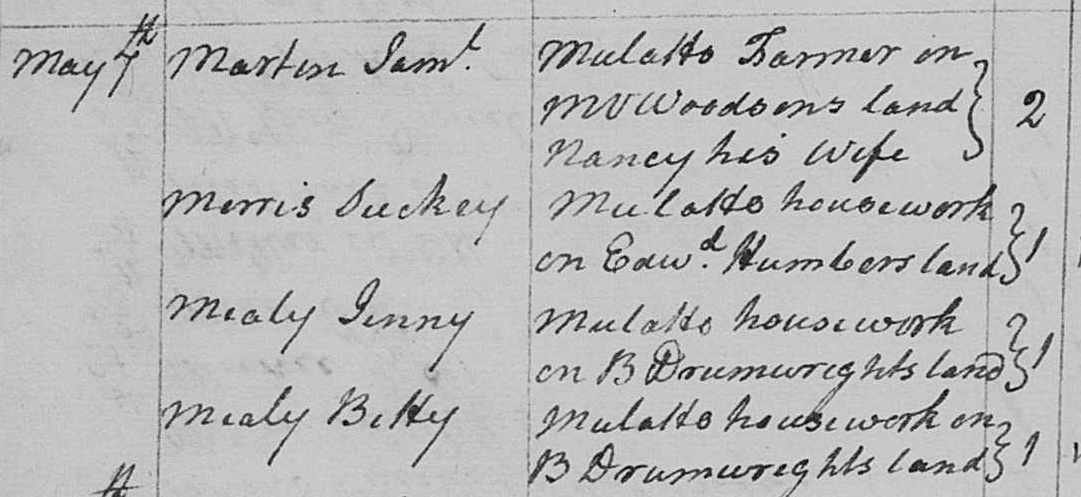 May 7th Martin Saml. Mulatto Farmer on
M V Woodsons land } 2
Nancy his Wife
Morris Suckey Mulatto housework
on Edwd. Humbers land } 1
Mealy Jinny Mulatto housework
on B Drumwrights land } 1
Mealy Betty Mulatto housework on
B Drumwrights land } 1
th